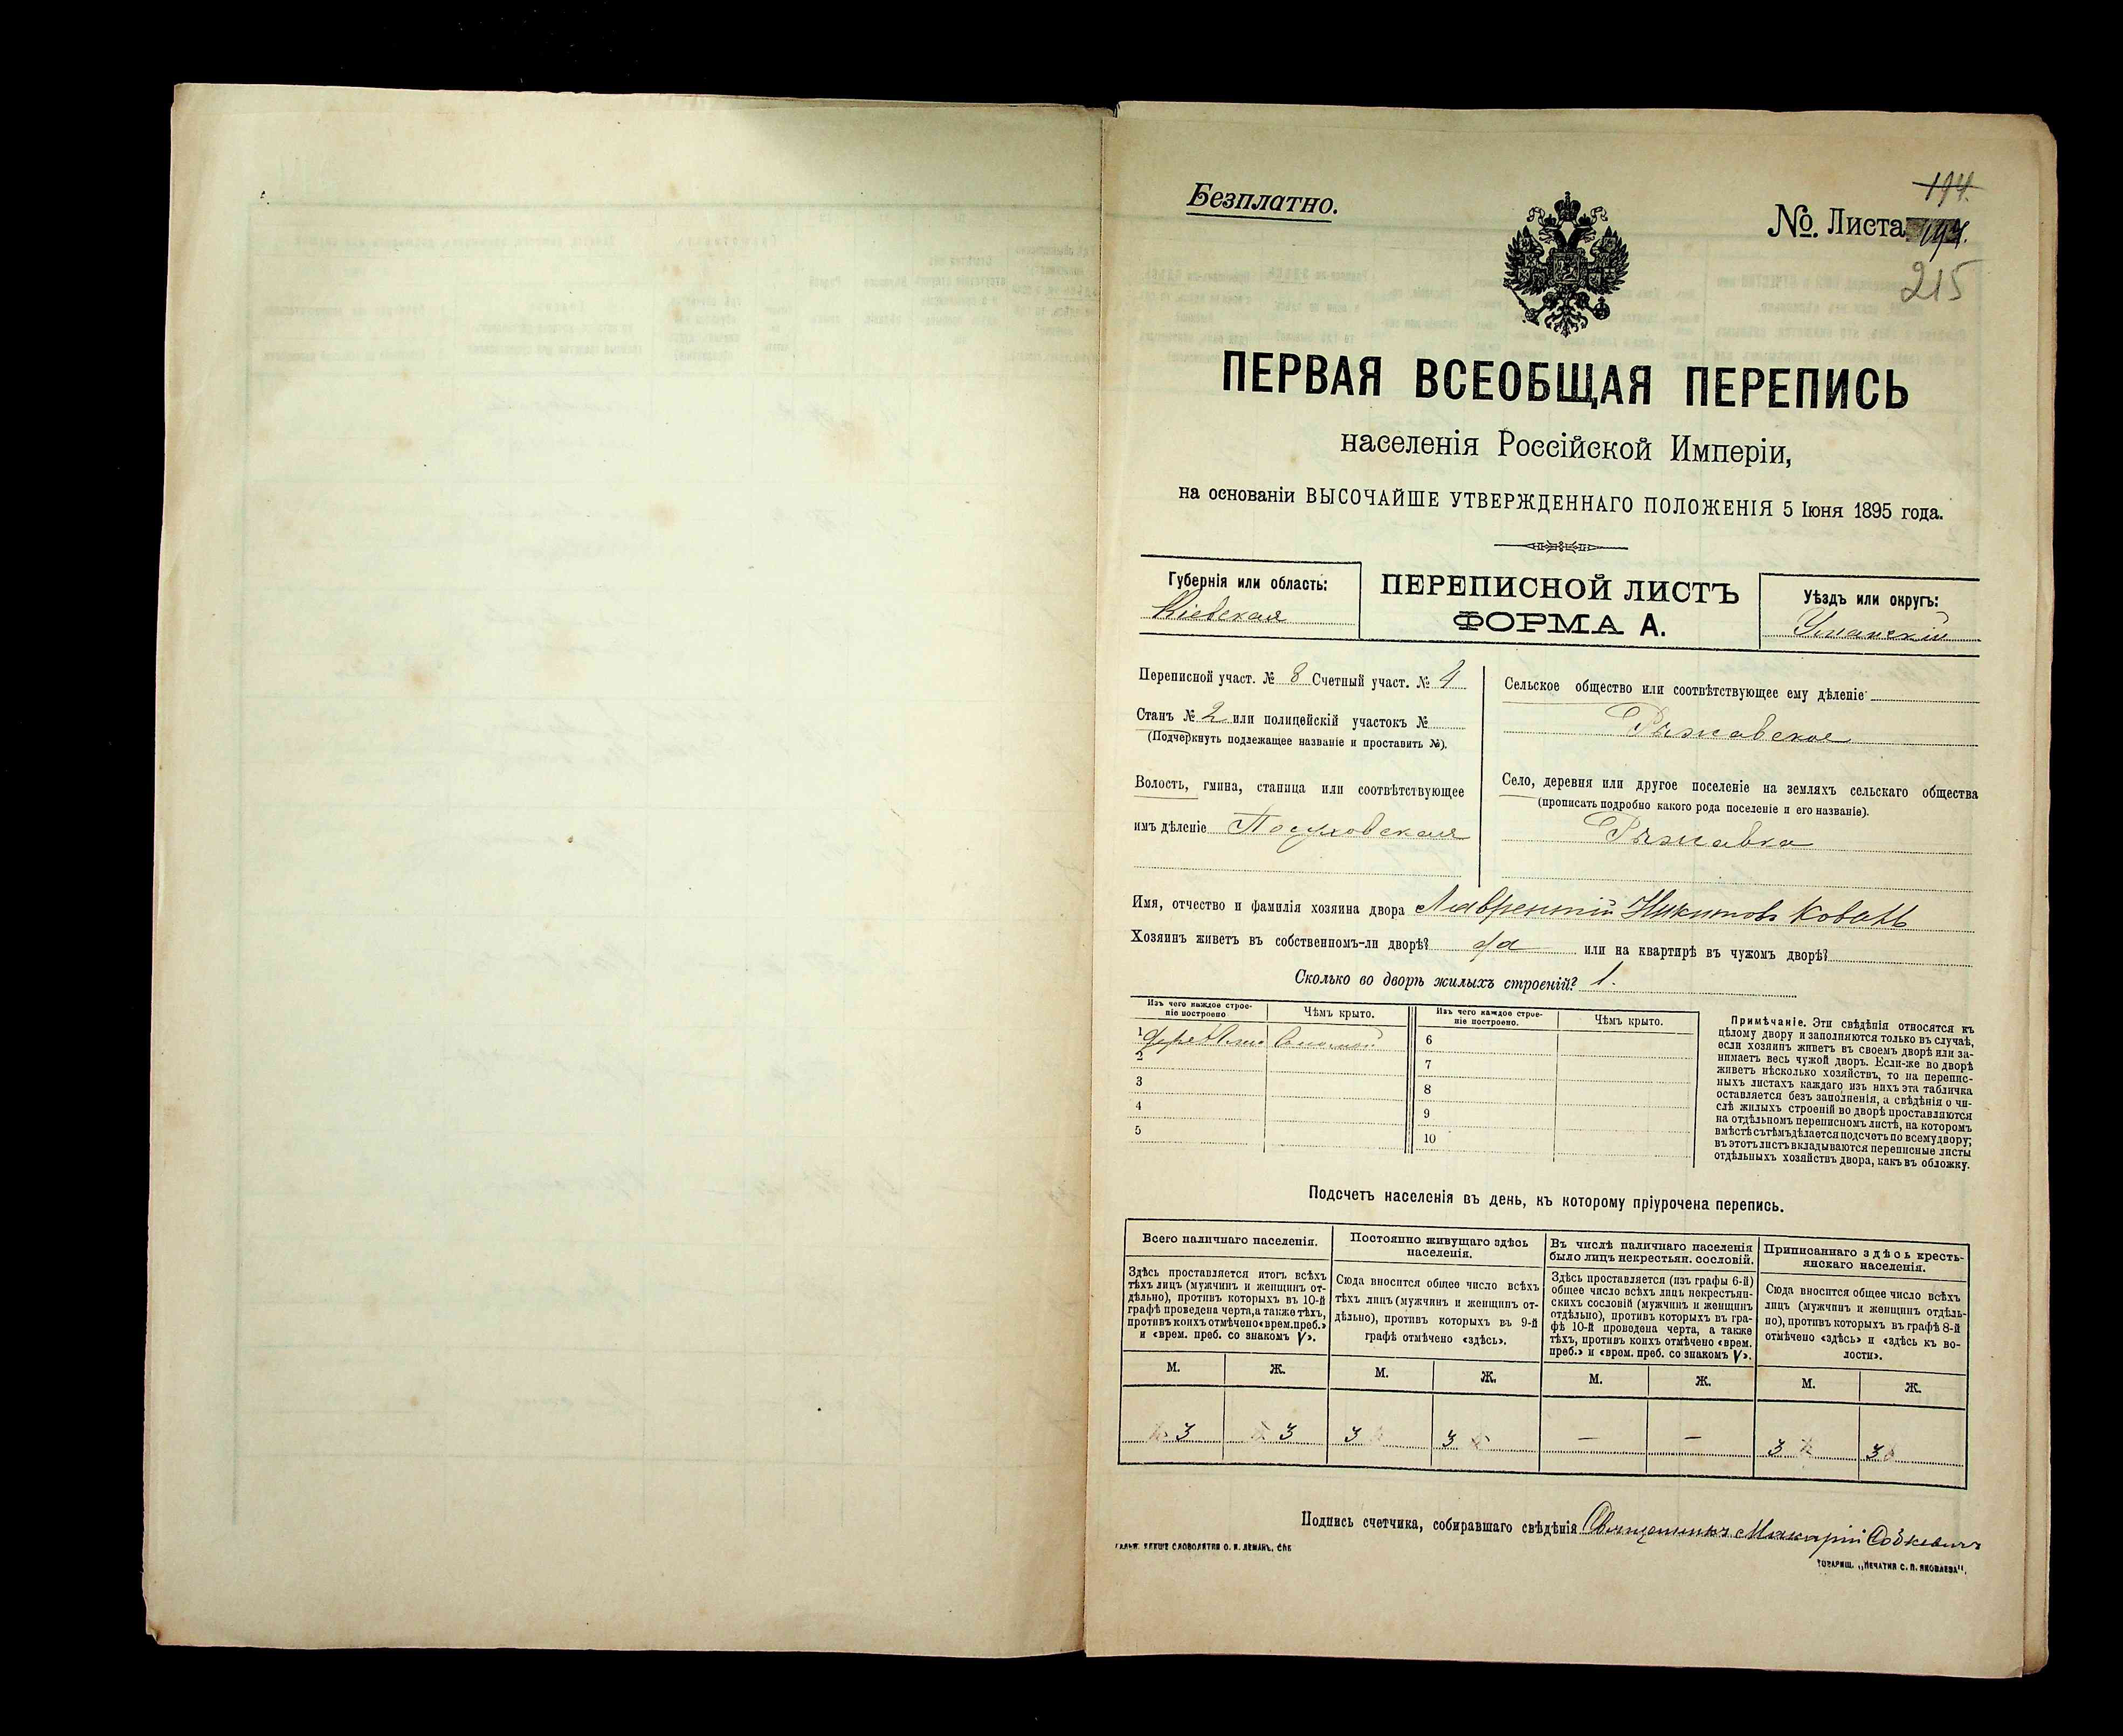 194.
Безплатно.
№. Листа 194.
215
ПЕРВАЯ ВСЕОБЩАЯ ПЕРЕПИСЬ
населенія Россійской Имперіи,
на основаніи ВЫСОЧАЙШЕ УТВЕРЖДЕННАГО ПОЛОЖЕНІЯ 5 Іюня 1895 года.
Губернія или область:
Кіевская
ПЕРЕПИСНОЙ ЛИСТЪ
ФОРМА А.
Уѣздъ или округъ:
Уманскій
Переписной участ. № 8 Счетный участ. № 4
Станъ № 2 или полицейскій участокъ №
(Подчеркнуть подлежащее названіе и проставить №).
Волость, гмина, станица или соотвѣтствующее
имъ дѣленіе Посуховская
Сельское общество или соотвѣтствующее ему дѣленіе
Ряжавское
Село, деревня или другое поселеніе на земляхъ сельскаго общества
(прописать подробно какого рода поселеніе и его названіе).
Ряжавка
Имя, отчество и фамилія хозяина двора Лаврентій Никитовъ Коваль
Хозяинъ живетъ въ собственномъ-ли дворѣ? да или на квартирѣ въ чужомъ дворѣ?
Сколько во дворѣ жилыхъ строеній? 1.
Изъ чего каждое строе-
ніе построено
Чѣмъ крыто.
Изъ чего каждое строе-
ніе построено.
Чѣмъ крыто.
1 Соломой 6
2 7
3 8
4 9
5 10
Примѣчаніе. Эти свѣдѣнія относятся къ
цѣлому двору и заполняются только въ случаѣ,
если хозяинъ живетъ въ своемъ дворѣ или за-
нимаетъ весь чужой дворъ. Если-же во дворѣ
живетъ нѣсколько хозяйствъ, то на перепис-
ныхъ листахъ каждаго изъ нихъ эта табличка
оставляется безъ заполненія, а свѣдѣнія о чи-
слѣ жилыхъ строеній во дворѣ проставляются
на отдѣльномъ переписномъ листѣ, на которомъ
вмѣстѣ съ тѣмъ дѣлается подсчетъ по всему двору;
въ этотъ листъ вкладываются переписные листы
отдѣльныхъ хозяйствъ двора, какъ въ обложку.
Подсчетъ населенія въ день, къ которому пріурочена перепись.
Всего наличнаго населенія.
Здѣсь проставляется итогъ всѣхъ
тѣхъ лицъ (мужчинъ и женщинъ от-
дѣльно), противъ которыхъ въ 10-й
графѣ проведена черта, а также тѣхъ,
противъ коихъ отмѣчено «врем. преб.»
и «врем. преб. со знакомъ V».
Постоянно живущаго здѣсь
населенія.
Сюда вносится общее число всѣхъ
тѣхъ лицъ (мужчинъ и женщинъ от-
дѣльно), противъ которыхъ въ 9-й
графѣ отмѣчено «здѣсь».
Въ числѣ наличнаго населенія
было лицъ некрестьян. сословій.
Здѣсь проставляется (изъ графы 6-й)
общее число всѣхъ лицъ некрестьян-
скихъ сословій (мужчинъ и женщинъ
отдѣльно), противъ которыхъ въ гра-
фѣ 10-й проведена черта, а также
тѣхъ, противъ коихъ отмѣчено «врем.
преб.» и «врем. преб. со знакомъ V».
Приписаннаго здѣсь кресть-
янскаго населенія.
Сюда вносится общее число всѣхъ
лицъ (мужчинъ и женщинъ отдѣль-
но), противъ которыхъ въ графѣ 8-й
отмѣчено «здѣсь» и «здѣсь къ во-
лости».
М. Ж. М. Ж. М. Ж. М. Ж.
3 3 3 3 — — 3 3
Подпись счетчика, собиравшаго свѣдѣнія Священникъ Макарій
СЛОВОЛИТНИ О. И. ЛЕМАНЪ, СПБ
ТОВАРИЩ. „ПЕЧАТНЯ С. П. ЯКОВЛЕВА".